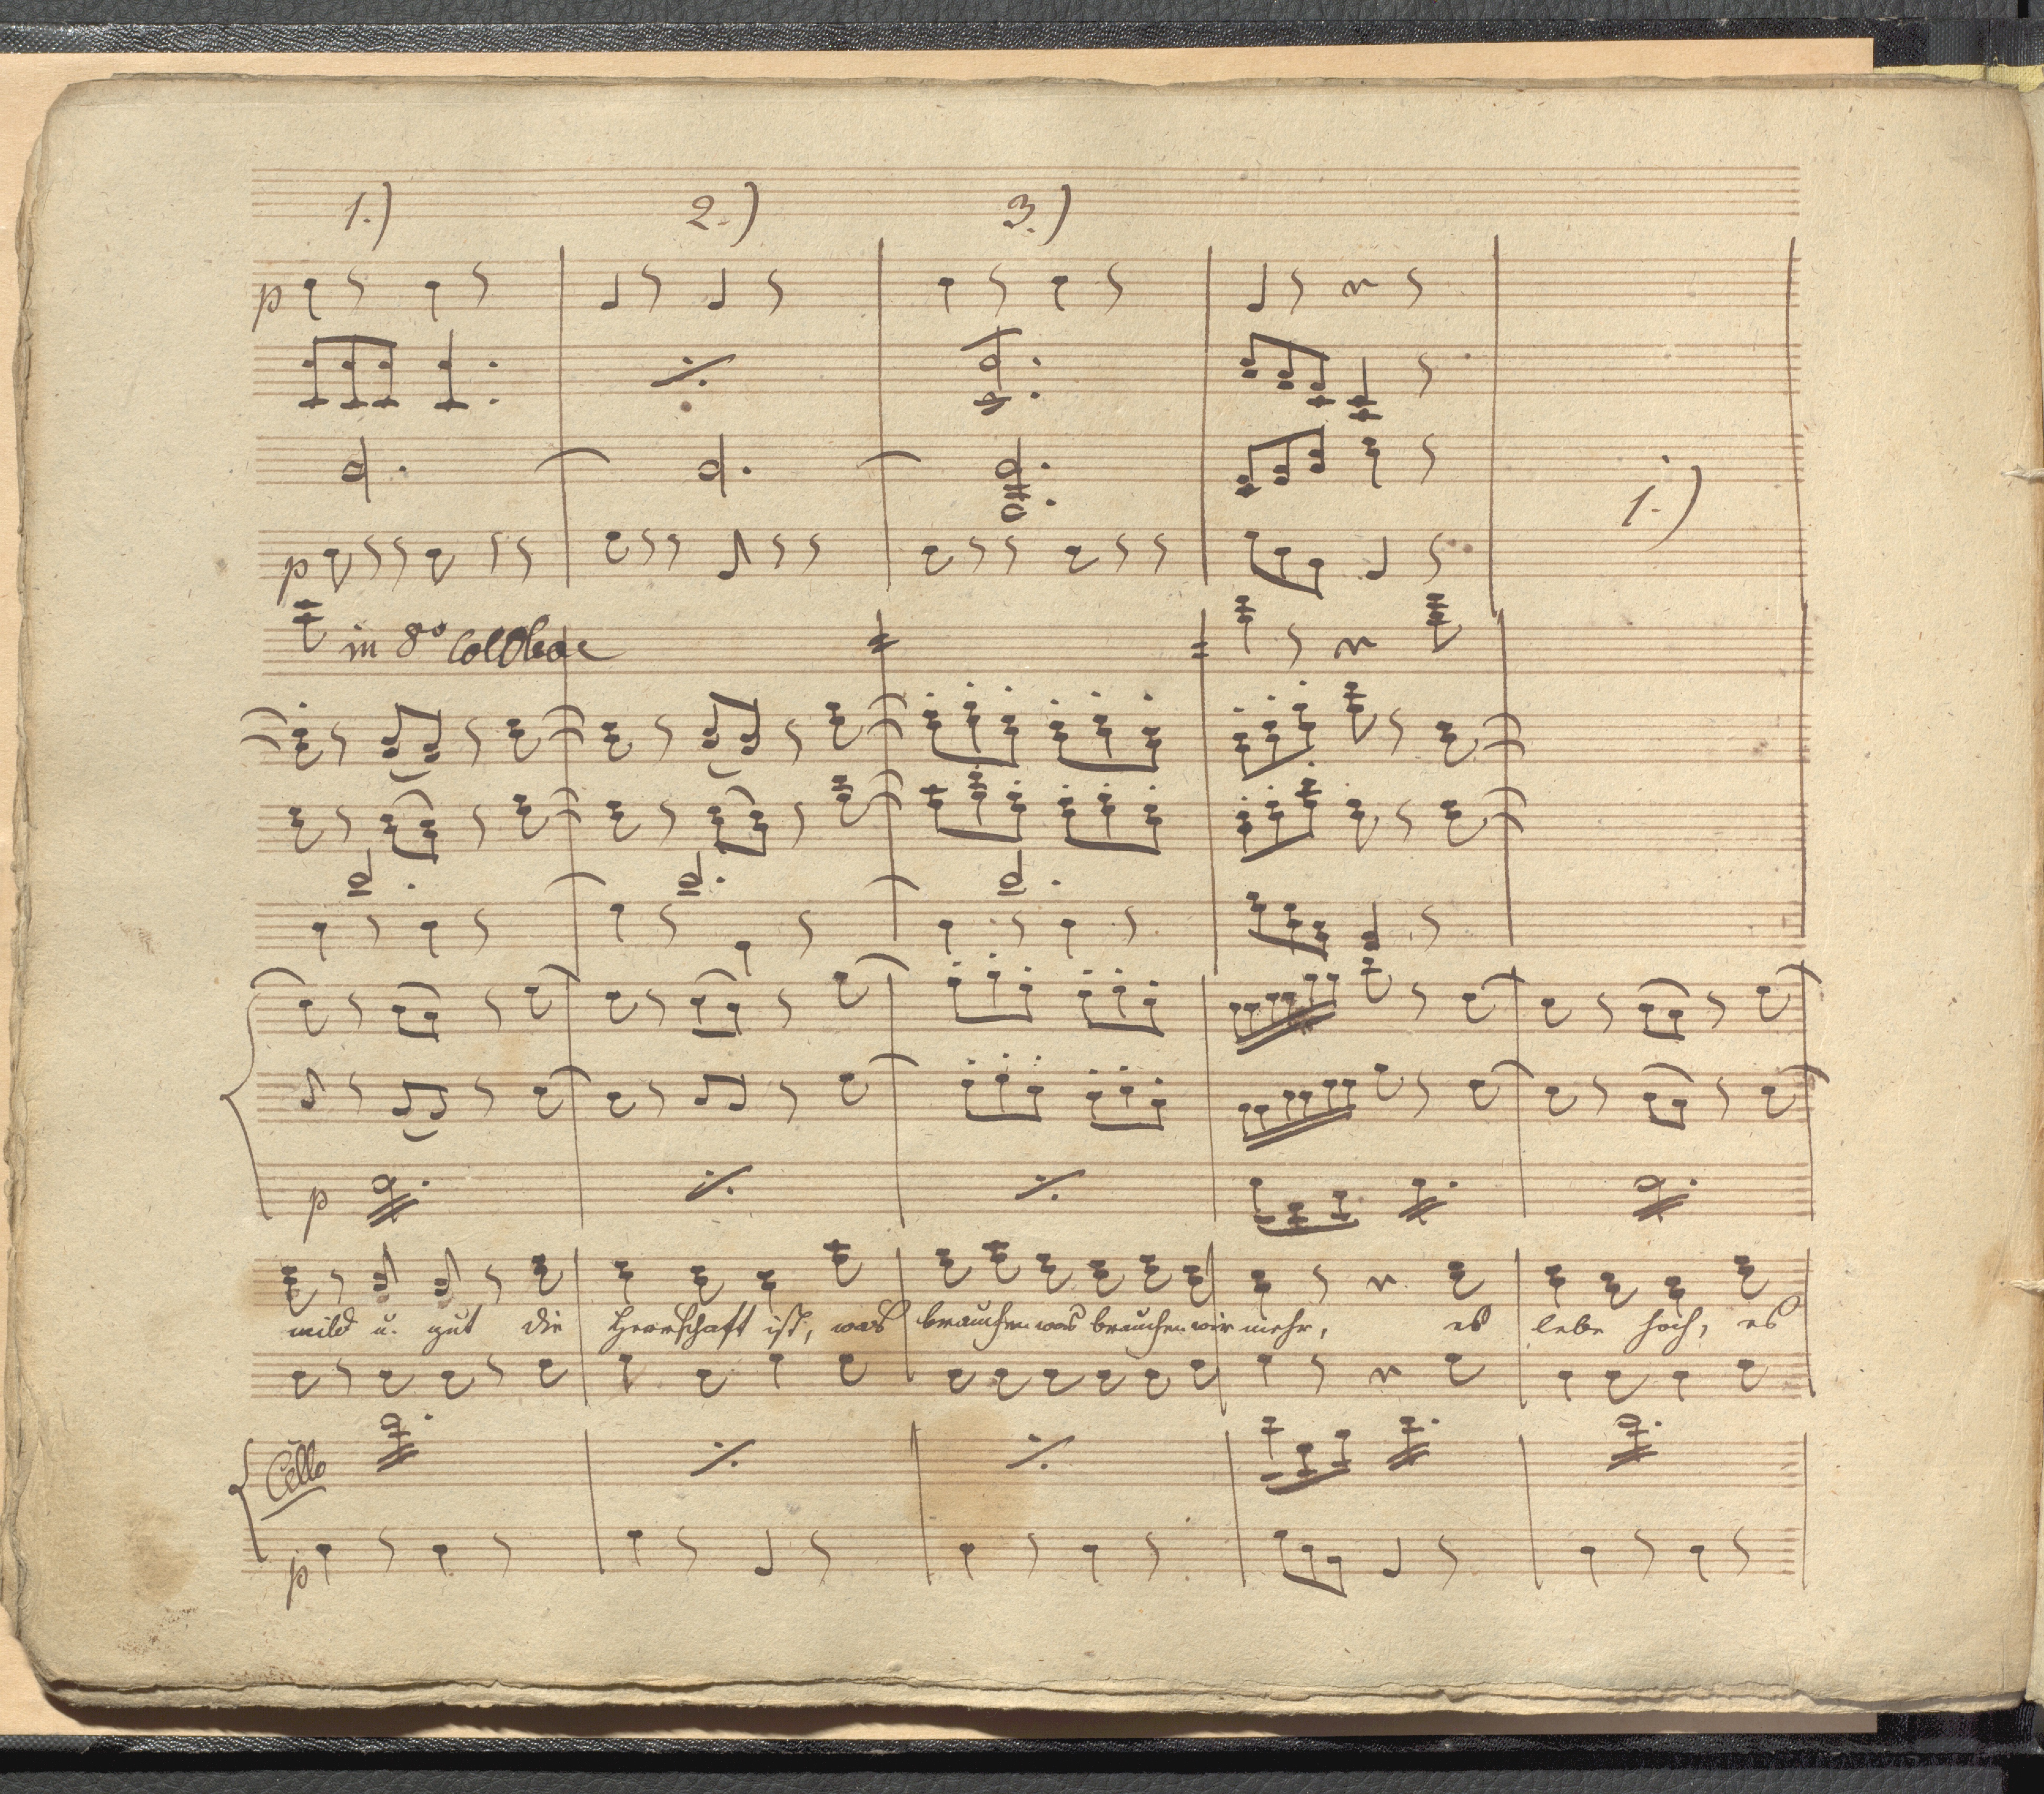 1.) 2.) 3.)
p
1.)
p
in 8º Col Oboe
p
mild u. gut die Herrschaft ist, was brauchen was brauchen wir mehr, es lebe hoch, es
Cello
p